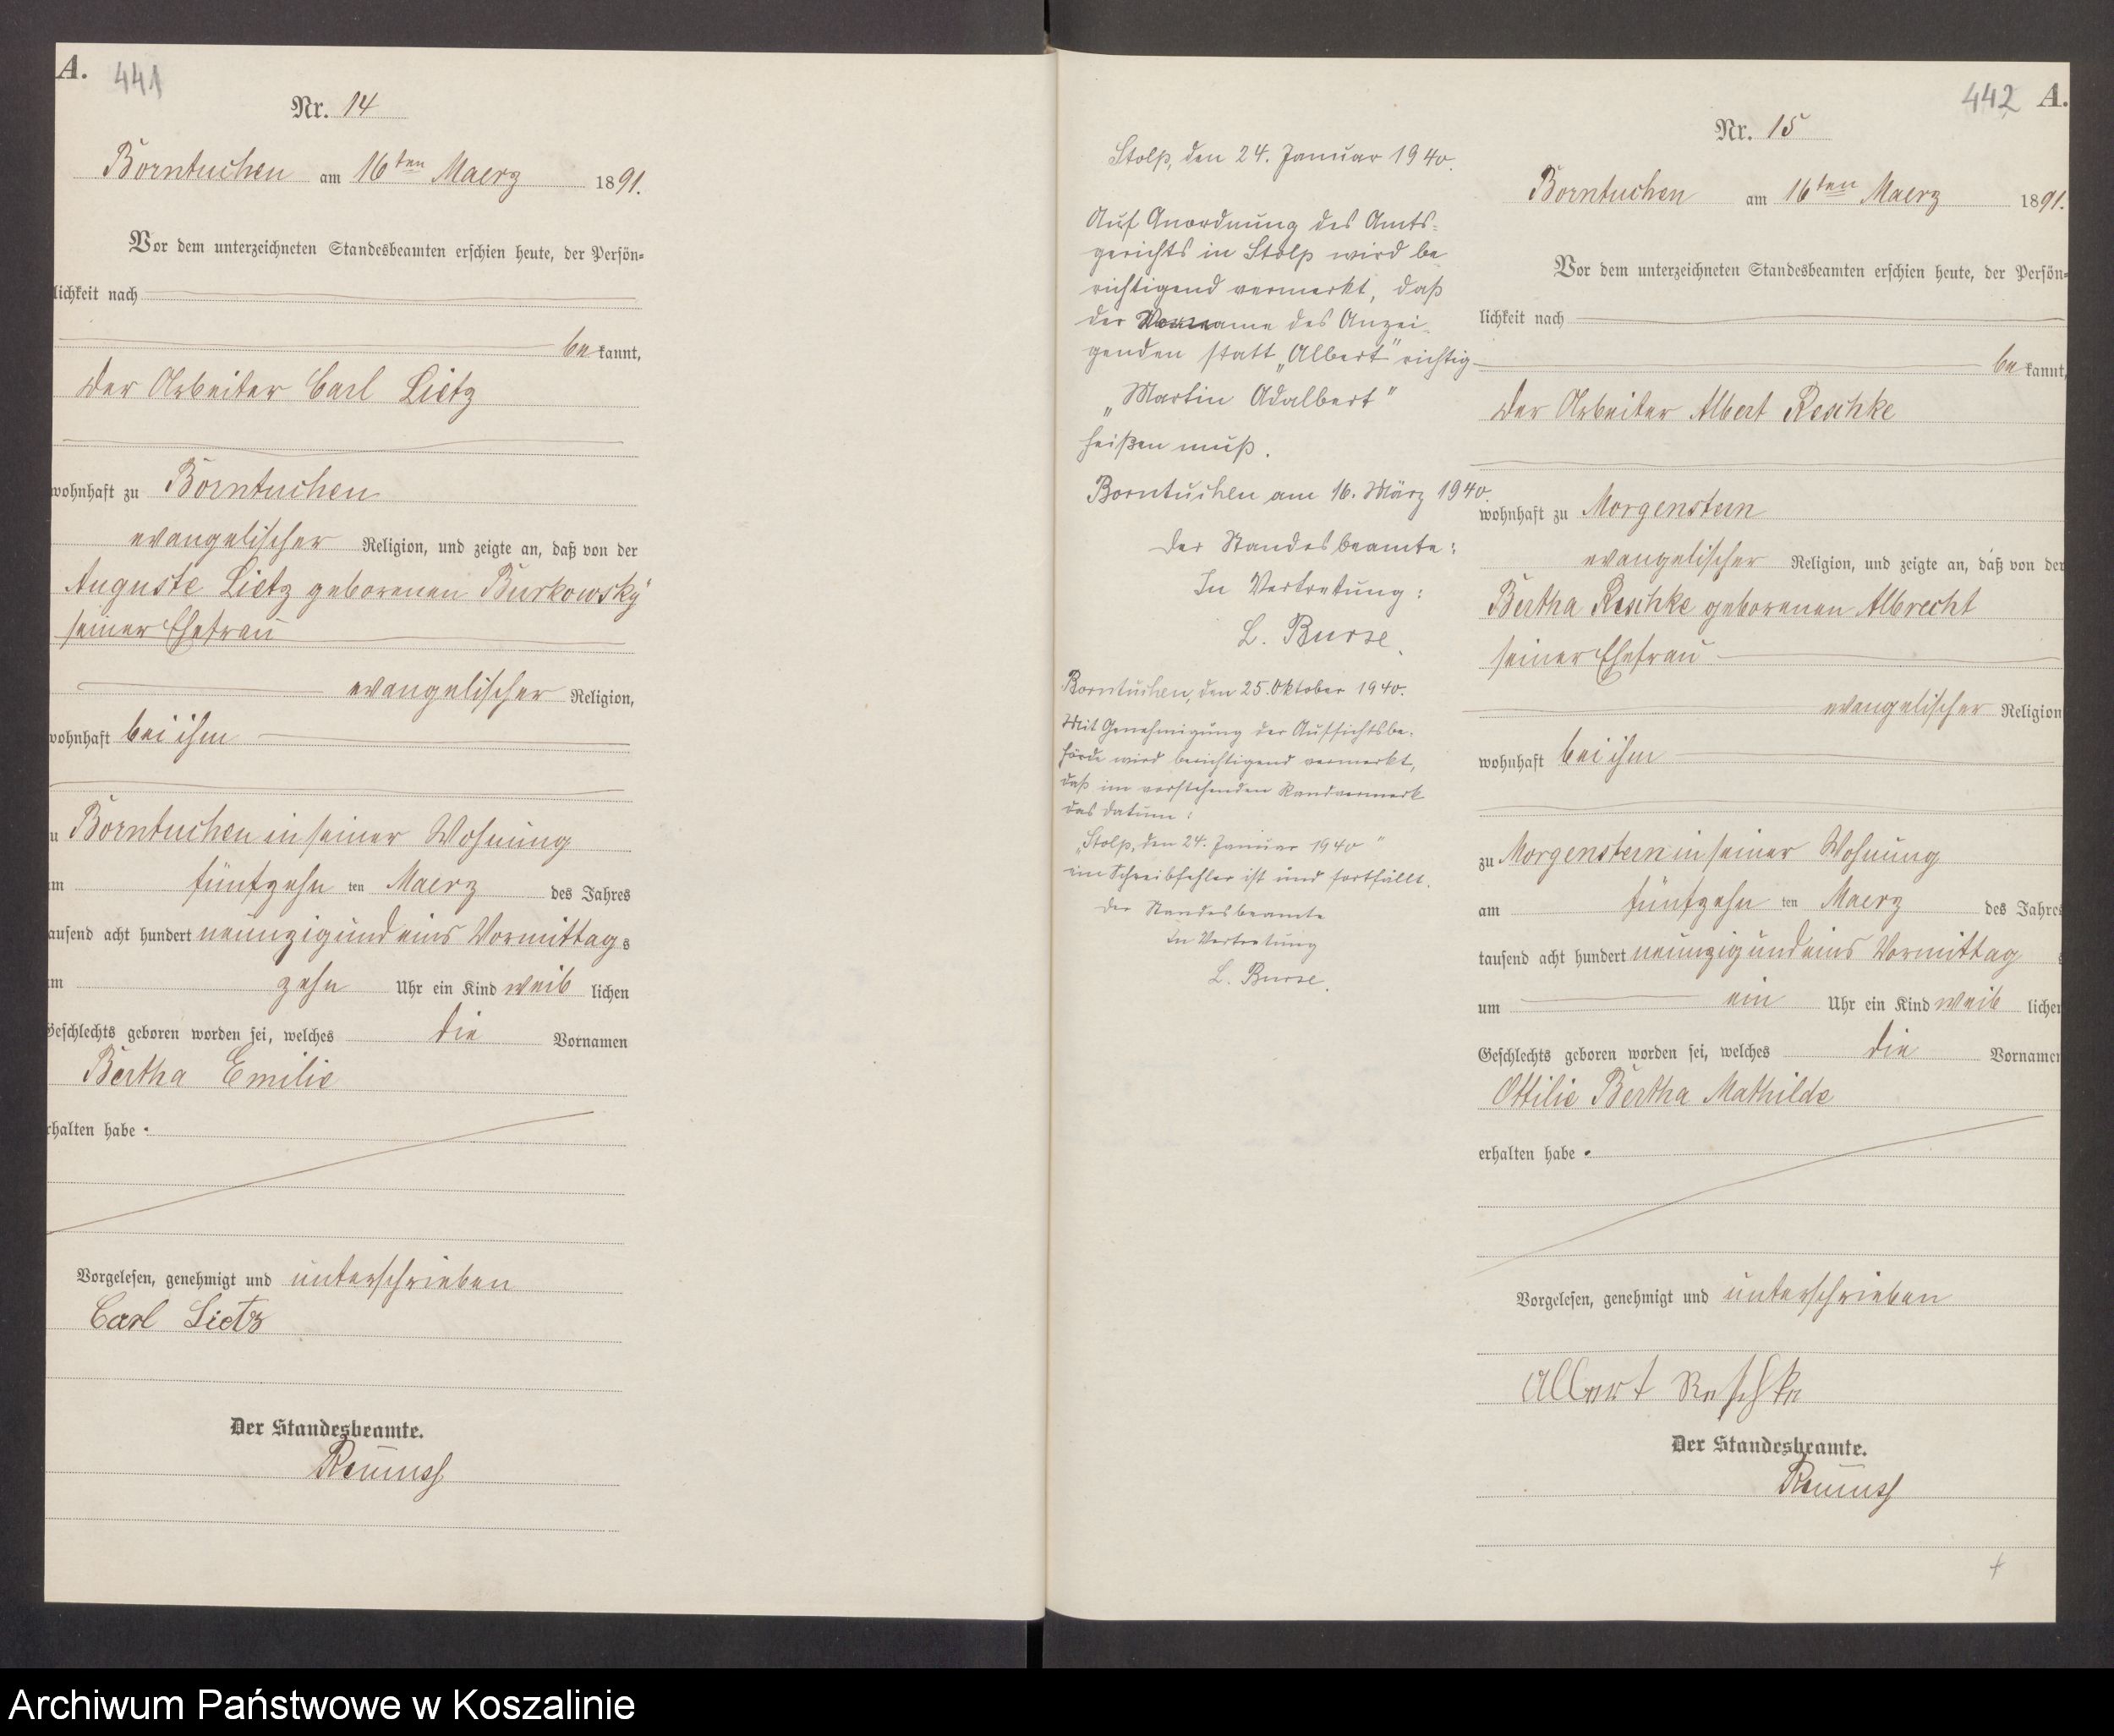 A. 441
Nr. 14
Borntuchen am 16ten Maerz 1891.
Vor dem unterzeichneten Standesbeamten erschien heute, der Persön-
lichkeit nach
bekannt,
der Arbeiter Carl Lietz
wohnhaft zu Borntuchen
evangelischer Religion, und zeigte an, daß von der
Auguste Lietz geborenen Burkowsky
seiner Ehefrau
evangelischer Religion,
wohnhaft bei ihm
u Borntuchen in seiner Wohnung
m fünfzehn ten Maerz des Jahres
ausend acht hundert neunzig und eins Vormittags
um zehn Uhr ein Kind weiblichen
Geschlechts geboren worden sei, welches die Vornamen
Bertha Emilie
rhalten habe.
Vorgelesen, genehmigt und unterschrieben
Carl Lietz
Der Standesbeamte.
Stolp, den 24. Januar 1940.
Auf Anordnung des Amts-
gerichts in Stolp wird be
richtigend vermerkt, daß
der Vorname des Anzei-
genden statt „Albert" richtig
„Martin Adalbert"
heißen muß.
Borntuchen am 16. März 1940.
Der Standesbeamte:
In Vertretung:
L. Burse.
Borntuchen, den 25. Oktober 1940.
Mit Genehmigung der Aufsichtsbe-
hörde wird berichtigend vermerkt,
daß im vorstehenden Randvermerk
das Datum:
„Stolp, den 24. Januar 1940"
ein Schreibfehler ist und fortfällt.
Der Standesbeamte
In Vertretung
L. Burse.
442 A.
Nr. 15
Borntuchen am 16ten Maerz 1891.
Vor dem unterzeichneten Standesbeamten erschien heute, der Persön-
lichkeit nach
bekannt,
der Arbeiter Albert Reschke
wohnhaft zu Morgenstern
evangelischer Religion, und zeigte an, daß von der
Bertha Reschke geborenen Albrecht
seiner Ehefrau
evangelischer Religion
wohnhaft bei ihm
zu Morgenstern in seiner Wohnung
am fünfzehn ten Maerz des Jahres
tausend acht hundert neunzig und eins Vormittags
um ein Uhr ein Kind weiblichen
Geschlechts geboren worden sei, welches die Vornamen
Ottilie Bertha Mathilde
erhalten habe.
Vorgelesen, genehmigt und unterschrieben
Albert Reschke
Der Standesbeamte.
Archiwum Państwowe w Koszalinie